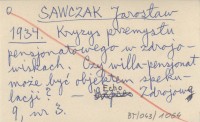 SAWCZAK Jarosław
1934. Kryzys przemysłu
pensjonatowego w zdrojo-
wiskach. Czy willa-pensjonat
może być objektem speku-
lacji? — Echo Zdrojowe
9, nr 3.
BT/043/1064